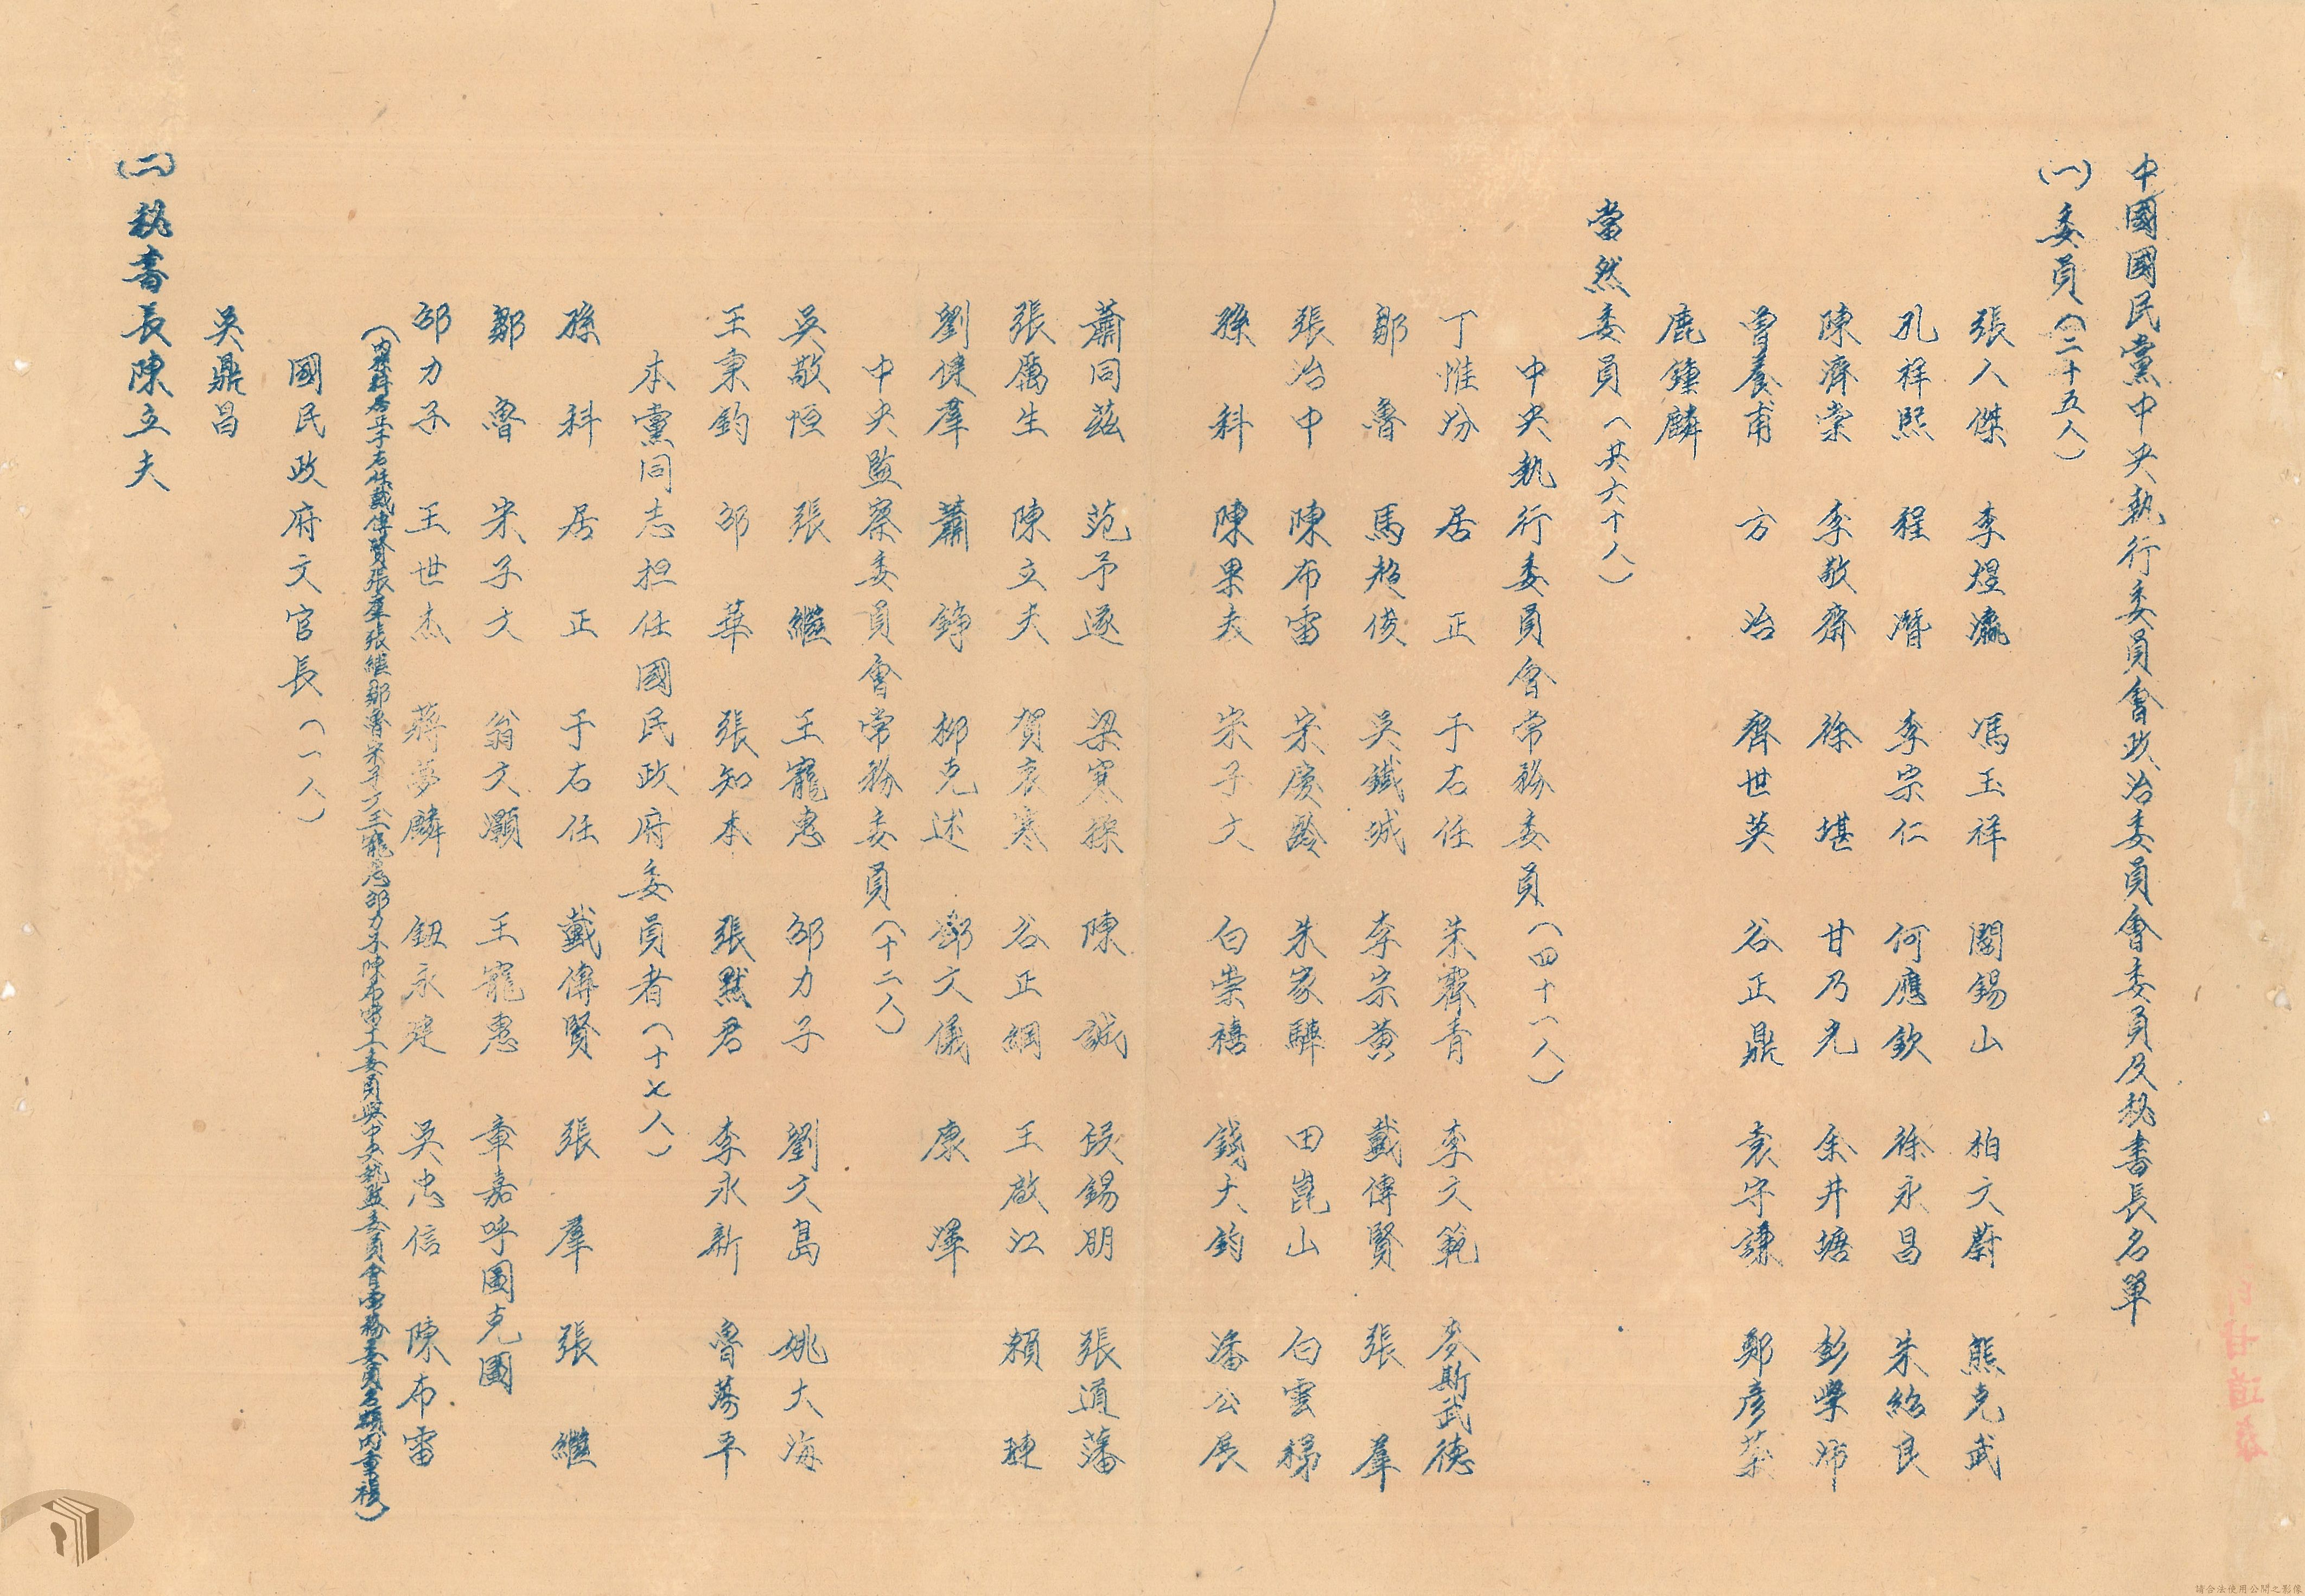 中國國民黨中央執行委員會政治委員會委員及秘書長名單
(一) 委員(二十五人)
張人傑 李煜瀛 馮玉祥 閻錫山 柏文蔚 熊克武
孔祥熙 程潛 李宗仁 何應欽 徐永昌 朱紹良
陳濟棠 李敬齋 徐堪 甘乃光 余井塘 彭學沛
曾養甫 方治 齊世英 谷正鼎 袁守謙 鄭彥棻
鹿鍾麟
當然委員(共六十八)
中央執行委員會常務委員(四十一人)
丁惟汾 居正 于右任 朱霽青 李文範 麥斯武德
鄒魯 馬超俊 吳鐵城 李宗黃 戴傳賢 張羣
張治中 陳布雷 宋慶齡 朱家驊 田崑山 白雲梯
孫科 陳果夫 宋子文 白崇禧 錢大鈞 潘公展
蕭同茲 范予遂 梁寒操 陳誠 段錫朋 張道藩
張厲生 陳立夫 賀衷寒 谷正綱 王啟江 賴璉
劉健羣 蕭錚 柳克述 鄧文儀 康澤
中央監察委員會常務委員(十二人)
吳敬恆 張繼 王寵惠 邵力子 劉文島 姚大海
王秉鈞 邵華 張知本 張默君 李永新 魯蕩平
本黨同志担任國民政府委員者(十七人)
孫科 居正 于右任 戴傳賢 張羣 張繼
鄒魯 宋子文 翁文灝 王寵惠 章嘉呼圖克圖
邵力子 王世杰 蔣夢麟 鈕永建 吳忠信 陳布雷
(內孫科居正于右任戴傳賢張羣張繼鄒魯宋子文王寵惠邵力子陳布雷十一委員與中央執監委員會常務委員名額內重複)
國民政府文官長(一人)
吳鼎昌
(二) 秘書長陳立夫
請合法使用公開之影像